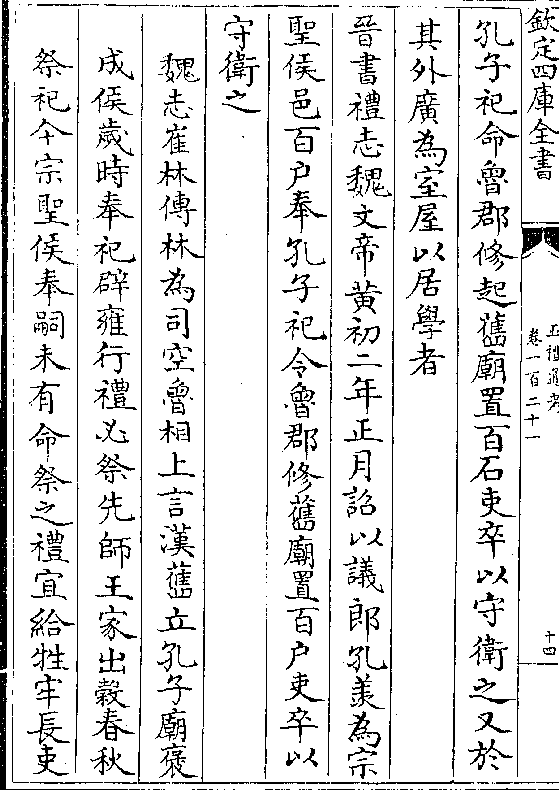 欽定四庫全書
五禮通考
卷一百二十一
十四
孔子祀命魯郡修起舊廟置百石吏卒以守衛之又於
其外廣為室屋以居學者
晉書禮志魏文帝黃初二年正月詔以議郎孔羨為宗
聖侯邑百户奉孔子祀令魯郡修舊廟置百户吏卒以
守衛之
魏志崔林傳林為司空魯相上言漢舊立孔子廟褒
成侯歲時奉祀辟雍行禮必祭先師王家出穀春秋
祭祀今宗聖侯奉嗣未有命祭之禮宜給牲牢長吏